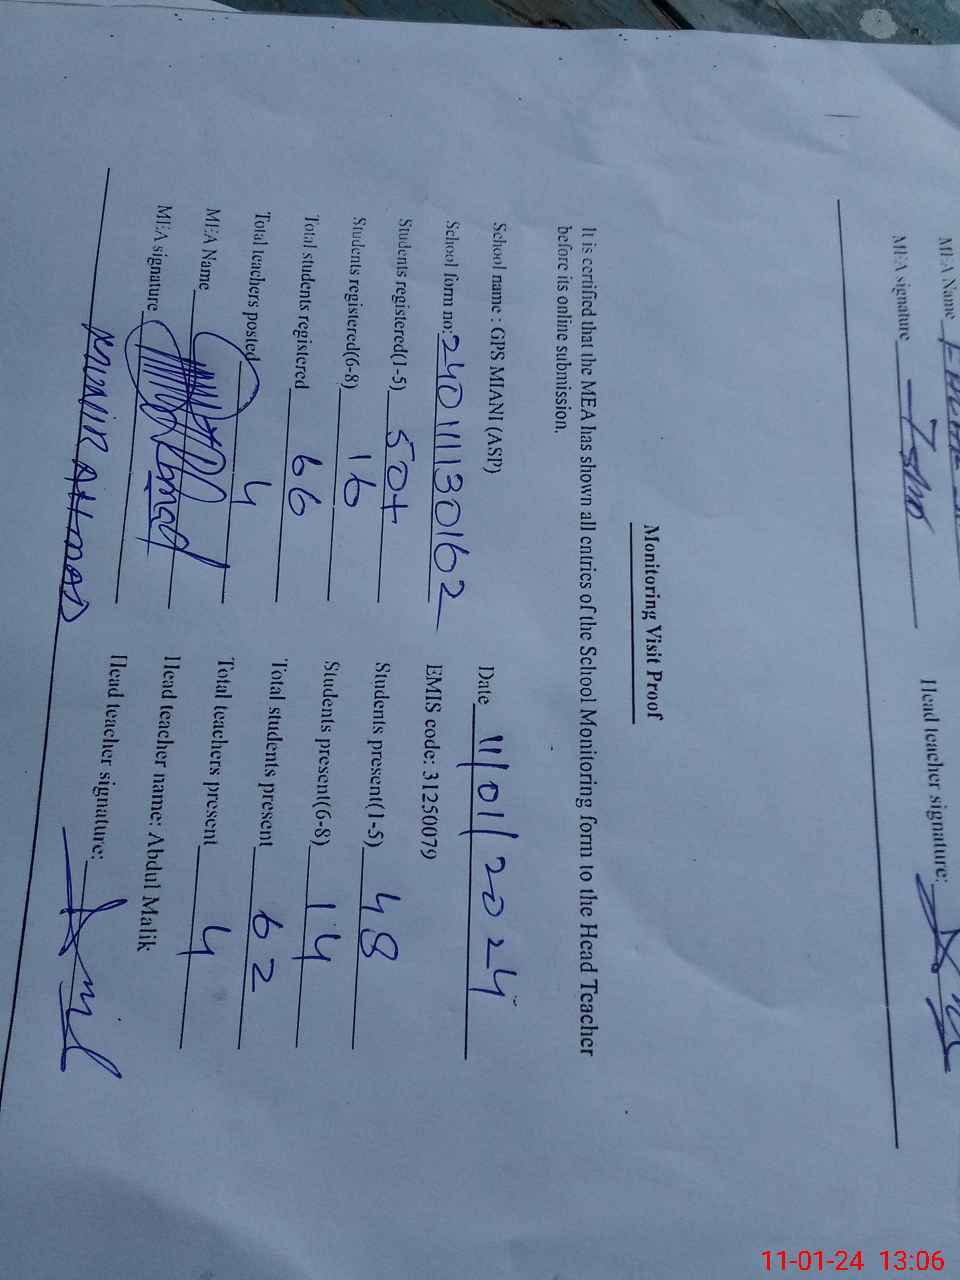 MEA Name
MEA signature
Head teacher signature:
Monitoring Visit Proof
It is certified that the MEA has shown all entries of the School Monitoring form to the Head Teacher
before its online submission.
School name : GPS MIANI (ASP)
Date 11/01/2024
School form no: 240111130162
EMIS code: 31250079
Students registered(1-5) 50+
Students present(1-5) 48
Students registered(6-8) 16
Students present(6-8) 14
Total students registered 66
Total students present 62
Total teachers posted 4
Total teachers present 4
MEA Name
Head teacher name: Abdul Malik
MEA signature
Head teacher signature:
MUNIR AHMAD
11-01-24 13:06